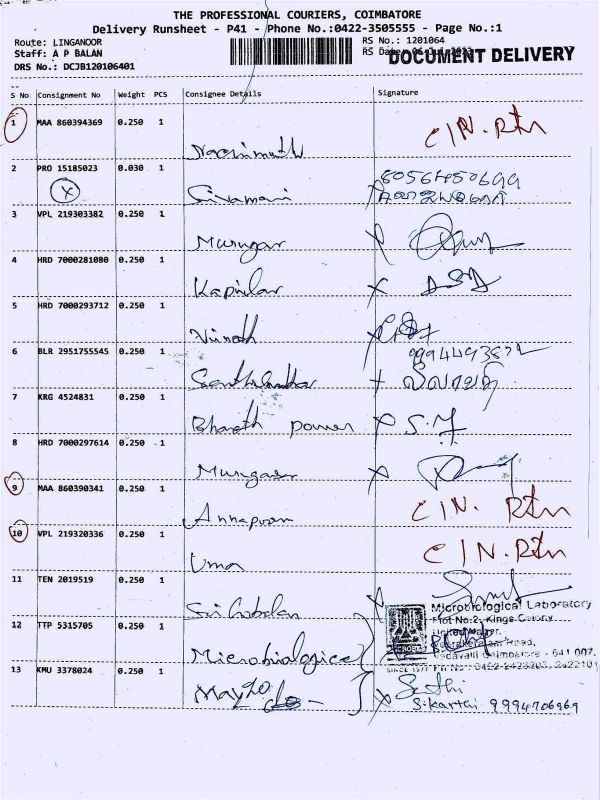 THE PROFESSIONAL COURIERS, COIMBATORE
Delivery Runsheet - P41 - Phone No.:0422-3505555 - Page No.:1
Route: LINGANOOR
Staff: A P BALAN
DRS No.: DCJB120106401
RS No.: 1201064
RS Date:
DOCUMENT DELIVERY
S No Consignment No Weight PCS Consignee Details Signature
1 MAA 860394369 0.250 1 C/N. Rtn
2 PRO 15185023 0.030 1 Sivamani 8056450699
X
3 VPL 219303382 0.250 1 Murugan X
4 HRD 7000281080 0.250 1 Kapilar X
5 HRD 7000293712 0.250 1 Vinoth
6 BLR 2951755545 0.250 1
7 KRG 4524831 0.250 1 Bharath power X S.
8 HRD 7000297614 0.250 1 X
9 MAA 860390341 0.250 1 Annapoorn C/N. Rtn
10 VPL 219320336 0.250 1 Uma C/N. Rtn
11 TEN 2019519 0.250 1 Sri Gobalan X
12 TTP 5315705 0.250 1 Microbiological
Microbiological Laboratory
Plot No:2, Kings Colony
Coimbatore - 641 007.
SINCE 1977 Ph No : 0422-2423203, 2422101
13 KMU 3378024 0.250 1 X
S.Karthi 9994706969